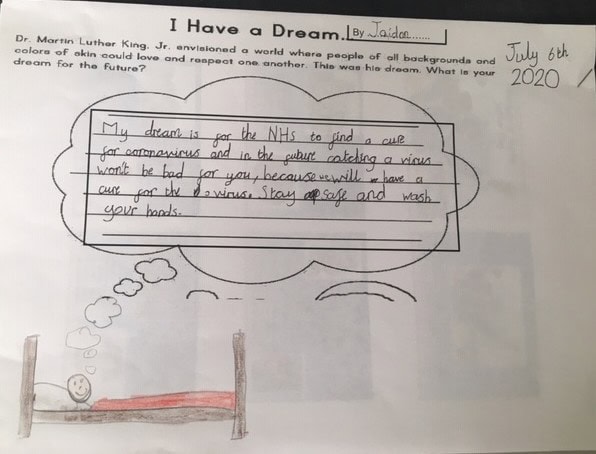 I Have a Dream. By Jaidon......
Dr. Martin Luther King, Jr. envisioned a world where people of all backgrounds and
colors of skin could love and respect one another. This was his dream. What is your
dream for the future?
July 6th
2020
My dream is for the NHS to find a cure
for coronavirus and in the future catching a virus
won't be bad for you, because we will have a
cure for the virus. Stay safe and wash
your hands.